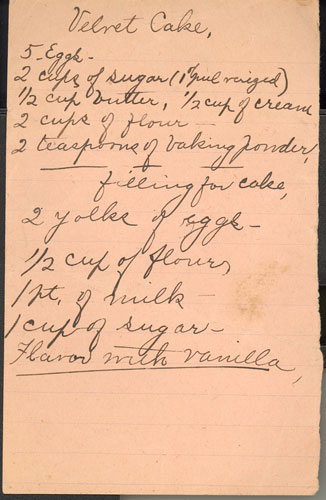 Velvet Cake,
5 - Eggs -
2 cups of sugar (1 pulverized)
1/2 cup butter, 1/2 cup of cream
2 cups of flour -
2 teaspoons of baking powder,
filling for cake,
2 yolks of eggs -
1/2 cup of flour,
1 pt. of milk -
1 cup of sugar -
Flavor with vanilla,